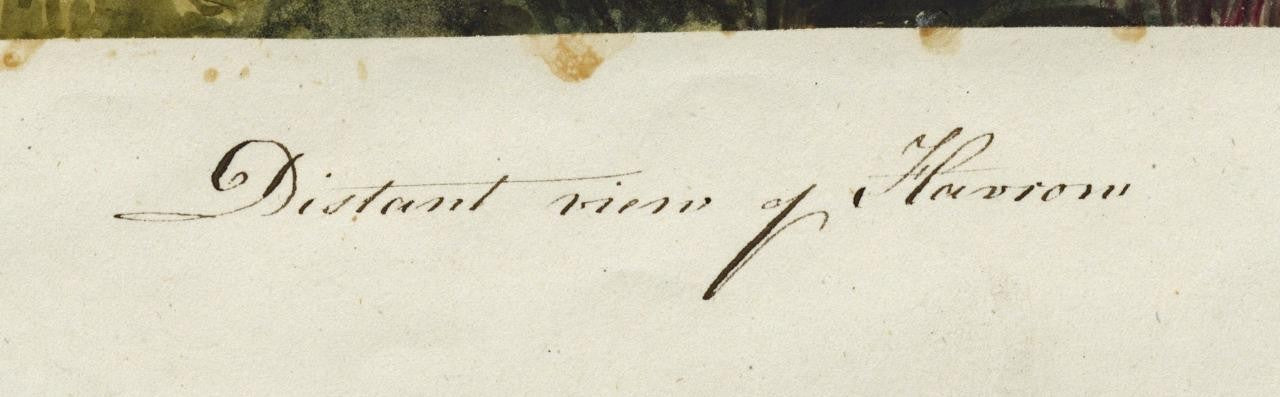 Distant view of Harrow